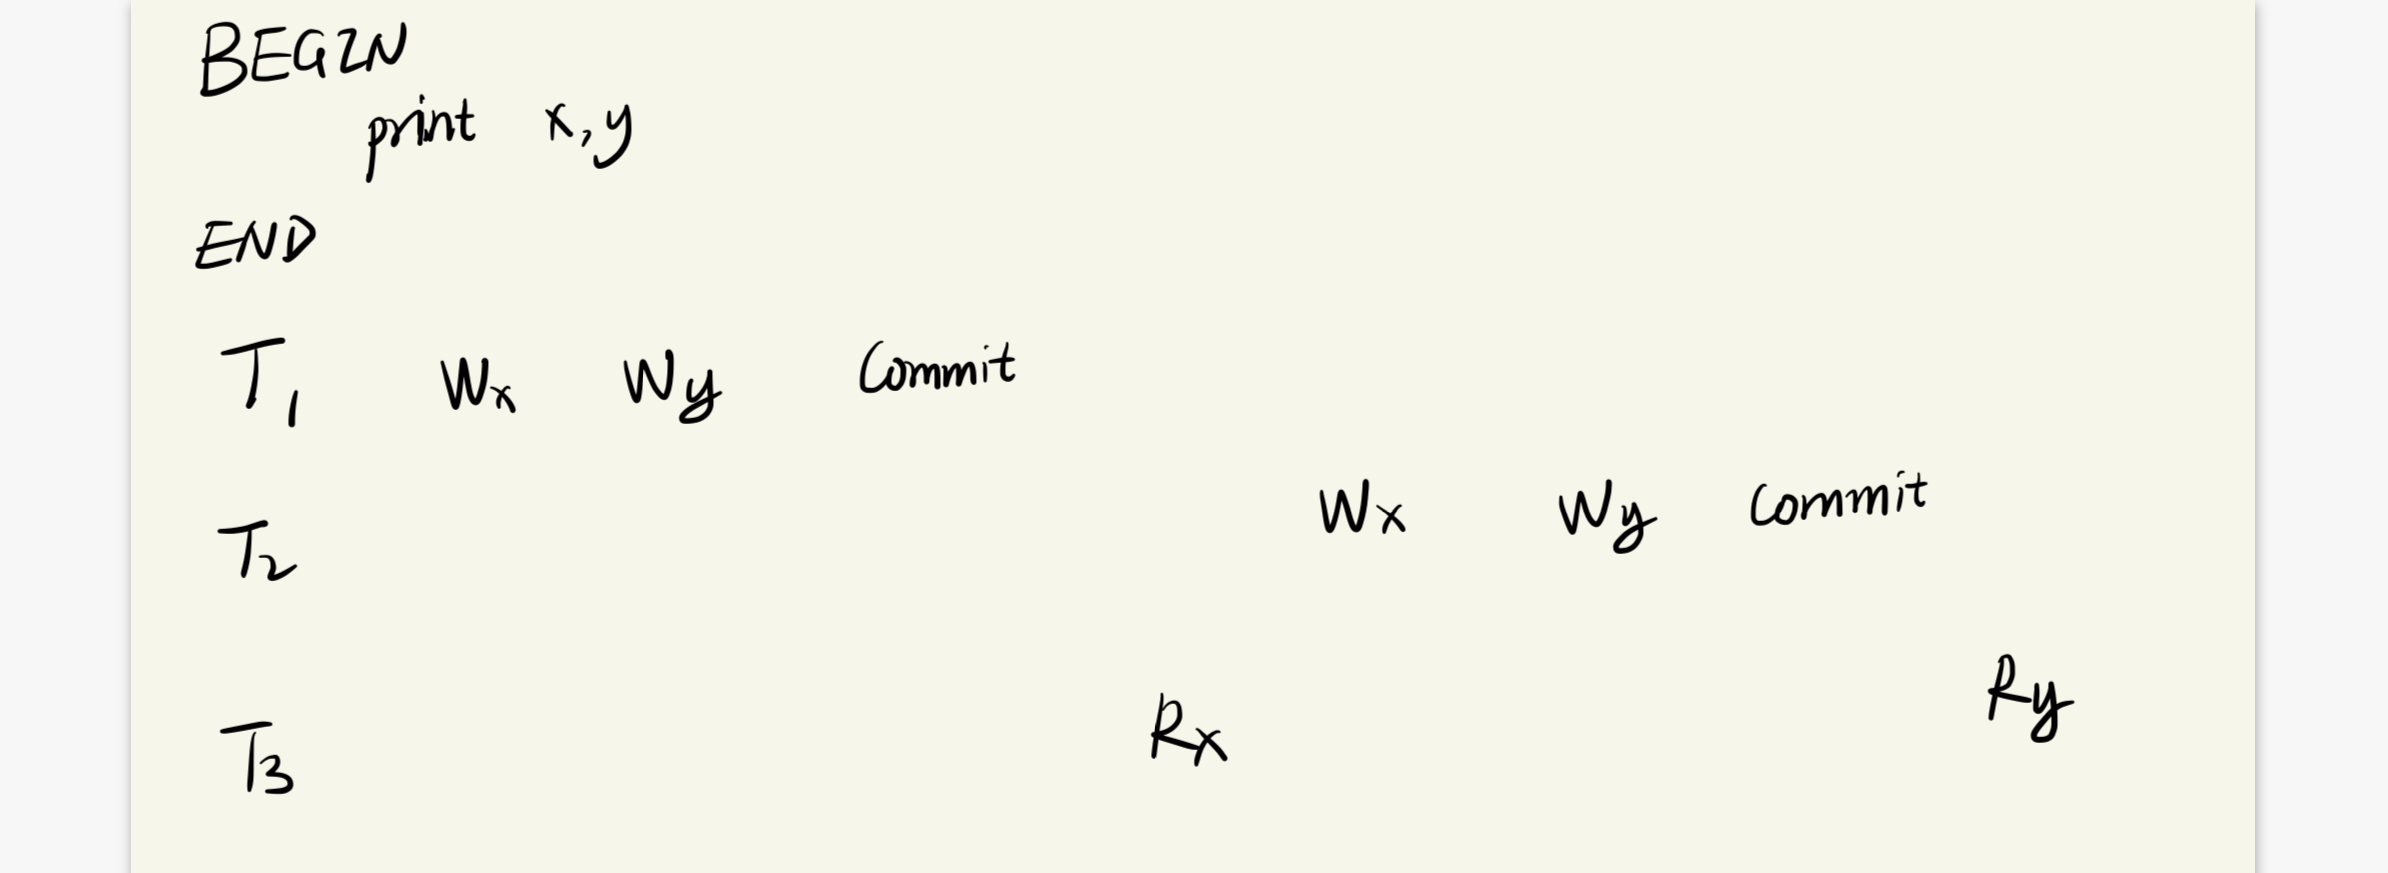 BEGIN
print x, y
END
T1 Wx Wy Commit
T2 Wx Wy Commit
T3 Rx Ry